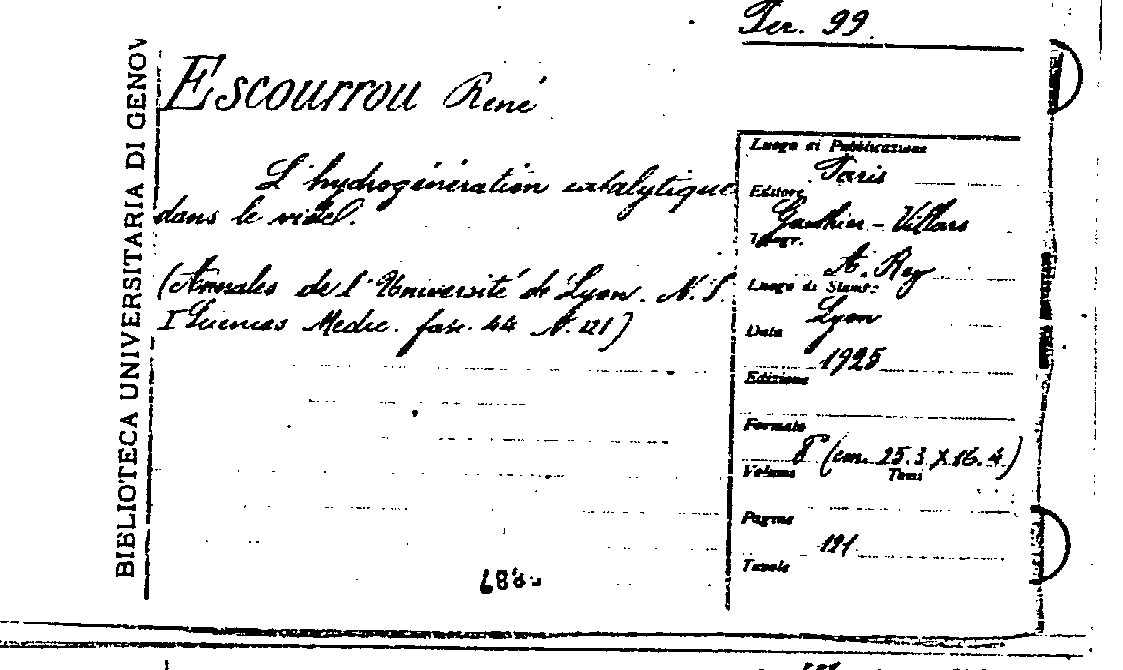 Per. 99.
BIBLIOTECA UNIVERSITARIA DI GENOV
Escourrou René
L'hydrogénération catalytique
dans le vide.
(Annales de l'Université de Lyon. N. S.
I Sciences Medic. fasc. 44 N. 121)
Luogo di Pubblicazione
Paris
Editore
Gauthier - Villars
Tipogr.
A. Rey
Luogo di Stampa
Lyon
Data
1925
Edizione
Formato
8° (cm. 25.3 X 16.4)
Volume Tomi
Pagine
121
Tavole